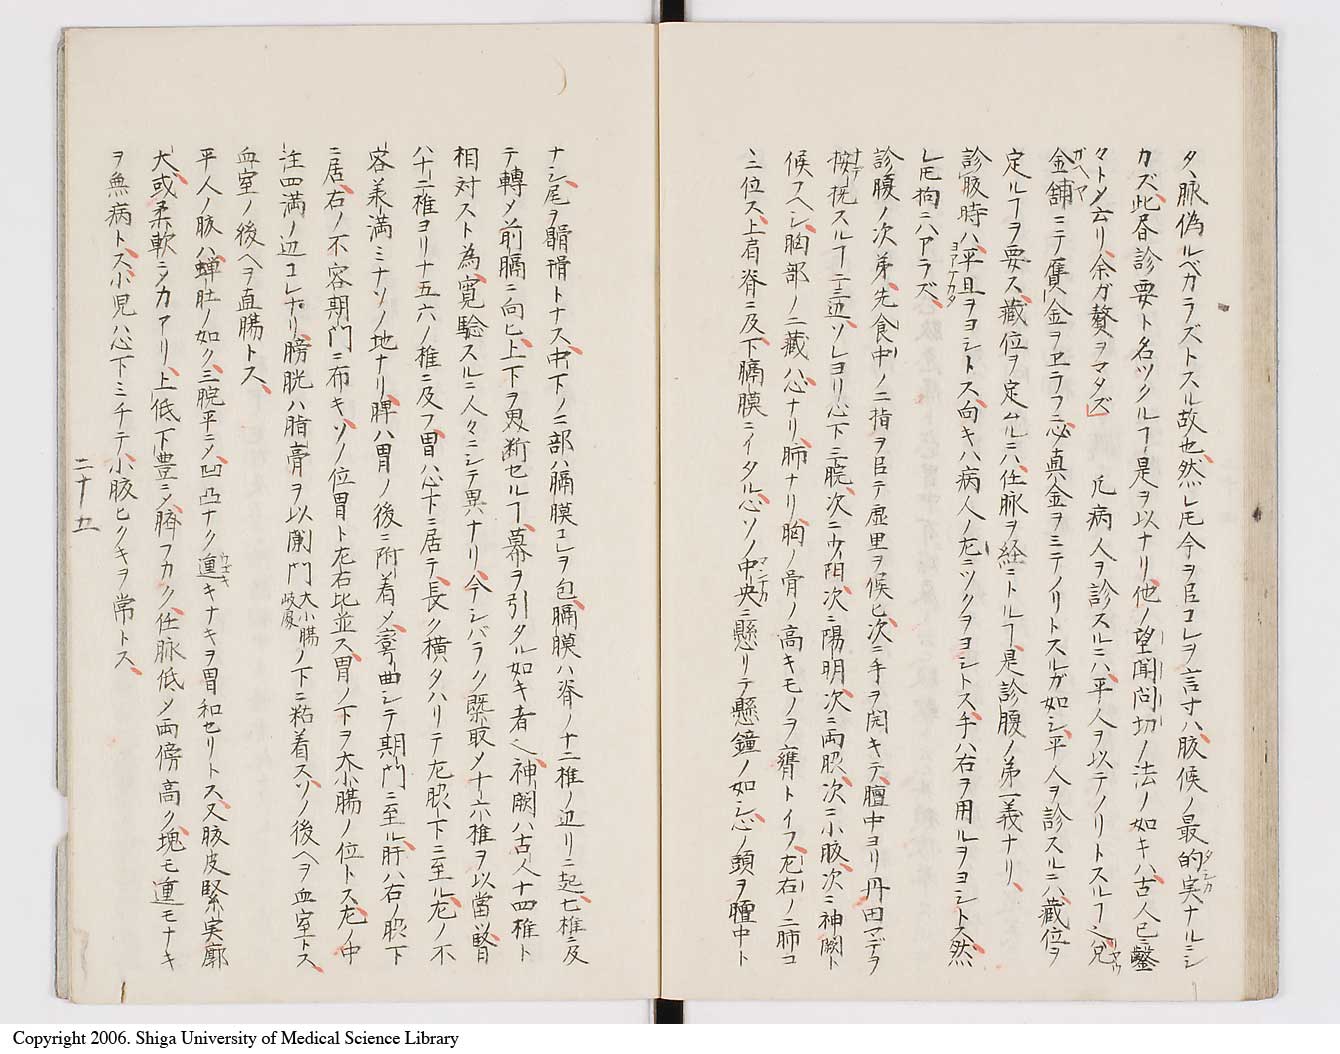 タ、脉偽ルベカラズトスル故也、然レ𪜈今ヲ㠯コレヲ言寸ハ、腹候ノ最的実タシカナルニシ
カズ、此吞診要ト名ヅクルヿ是ヲ以ナリ、他ノ望聞問切ノ法ノ如キハ、古人已ニ鑿
々トメ云リ、余ガ贅ヲマタズ」 凡病人ヲ診スルニハ、平人ヲ以テノリトスルヿ、
金舗ニテ贋金ヲヱラフニ、必真金ヲミテノリトスルガ如シ、平人ヲ診スルニハ、蔵位ヲ
定ルヿヲ要ス、蔵位ヲ定ルニハ、任脉ヲ経ニトルヿ、是診腹ノ第一義ナリ、
診腹時ハ、平旦ヨアケカタヲヨシトス、向キハ病人ノ左ニツクヲヨシトス、手ハ右ヲ用ルヲヨシトス、然
レ𪜈拘ニハアラズ、
診腹ノ次第、先食中ノ二指ヲ㠯テ虚里ヲ候ヒ、次ニ手ヲ開キテ、膻中ヨリ丹田マデヲ
按撫スルヿ二三辺、ソレヨリ心下三脘、次ニ少阳、次ニ陽明、次ニ両䏚、次ニ小腹、次ニ神闕ト
候フヘシ、胸部ノ二蔵ハ心ナリ、肺ナリ、胸ノ骨ノ高キモノヲ膺トイフ、左右ノ二肺コ
ニ位ス、上肩脊ニ及、下膈膜ニイタル、心ソノ中央マンナカニ懸リテ懸鐘ノ如シ、心ノ頭ヲ膻中ト
ナシ、尾ヲ𩩲骬トナス、中下ノ二部ハ膈膜コレヲ包、膈膜ハ脊ノ十二椎ノ辺リニ起、七椎ニ及
テ轉メ前膈ニ向ヒ、上下ヲ界断セルヿ、幕ヲ引タル如キ者、神闕ハ古人十四椎ト
相対スト為、寛験スルニ人々ニシテ異ナリ、今シバラク槩取メ十六椎ヲ以當、腎
ハ十二椎ヨリ十五六ノ椎ニ及フ、胃ハ心下ニ居テ、長ク横タハリテ左䏚下ニ至ル、左ノ不
容兼満ミナソノ地ナリ、脾ハ胃ノ後ニ附着メ、弯曲シテ期門ニ至ル、肝ハ右ノ䏚下
ニ居、右ノ不容期門ニ布キ、ソノ位胃ト左右比並ス、胃ノ下ヲ大小腸ノ位トス、左ノ中
注四満ノ辺コレナリ、膀胱ハ脂膏ヲ以闌門大小腸岐處ノ下ニ粘着ス、ソノ後ヘヲ血室トス、
血室ノ後ヘヲ直腸トス、
平人ノ腹ハ、蝉肚ノ如ク、三脘平ニメ、凹凸ナク、連キナキヲ胃和セリトス、又腹皮緊実廓
大、或柔軟ニシカアリ、上低下豊ニメ、臍フカク、任脉低メ両傍高ク、塊モ連モナキ
ヲ無病トス、小児ハ心下ミチテ、小腹ヒクキヲ常トス、
二十五
Copyright 2006. Shiga University of Medical Science Library